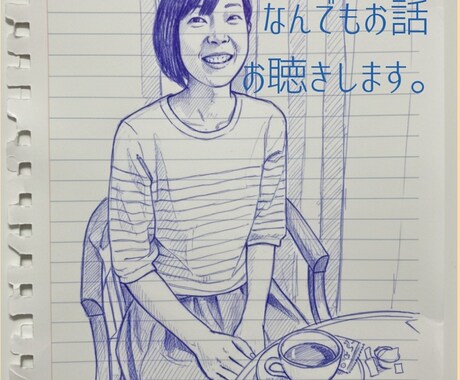 なんでもお話
お聴きします。